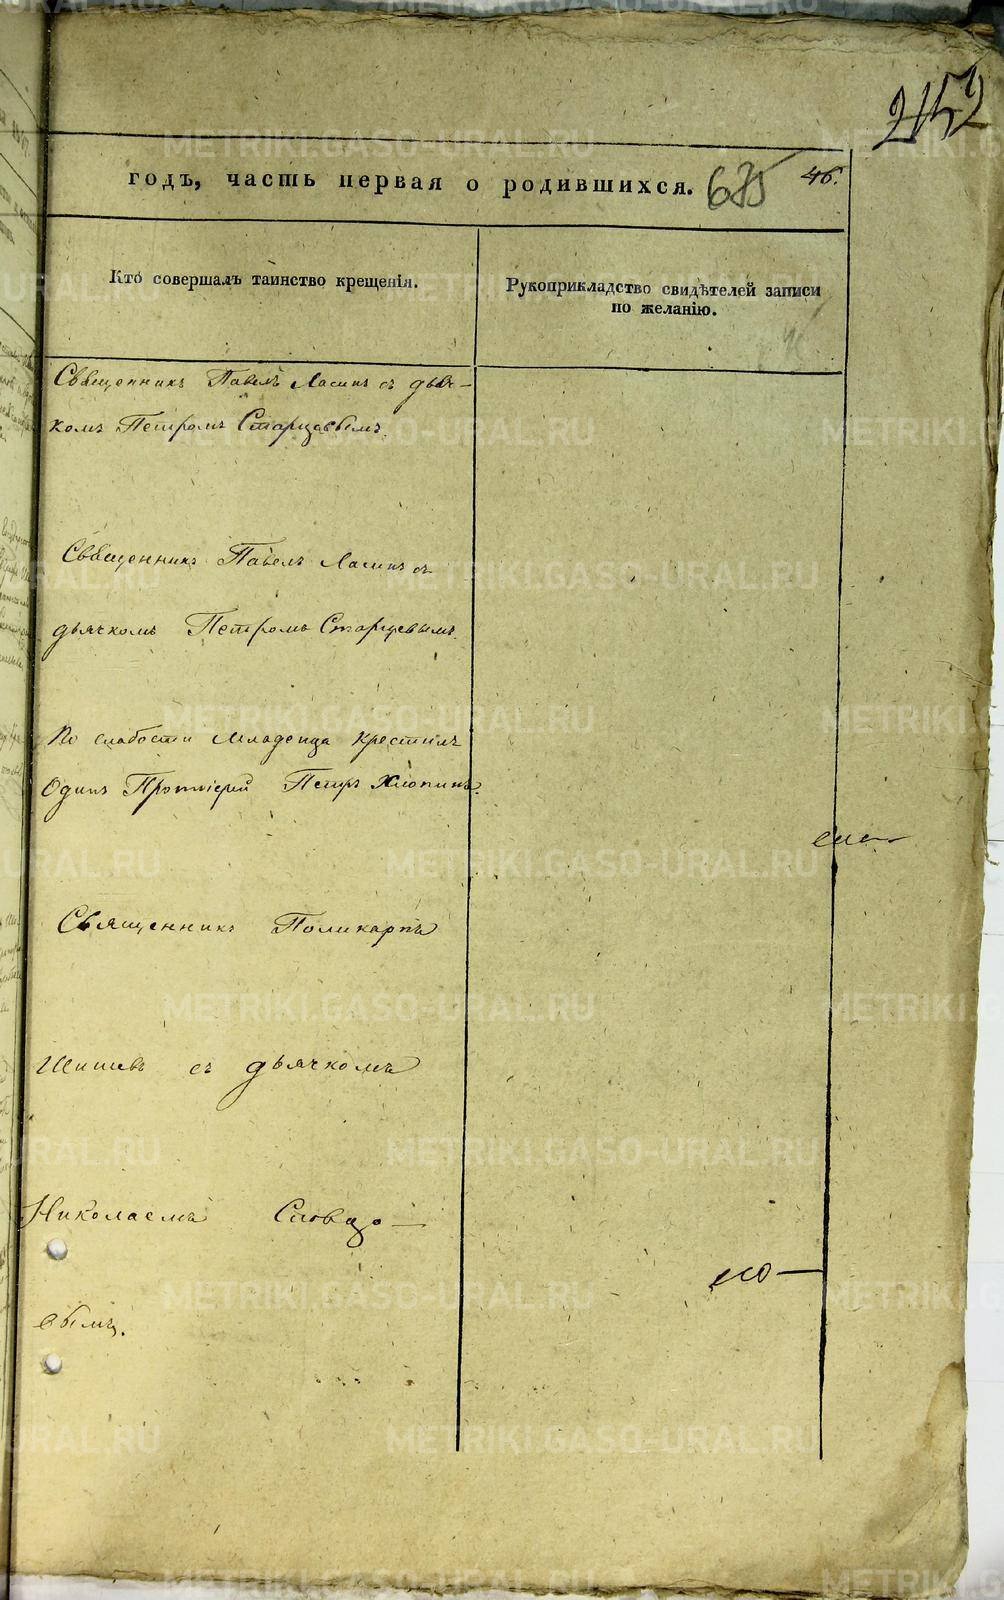 2152
годъ, часть первая о родившихся. 675 46.
Кто совершалъ таинство крещенія.
Рукоприкладство свидѣтелей записи
по желанію.
Священникъ Павелъ Ласинъ съ дьяч-
комъ Петромъ Старцевымъ.
Священникъ Павелъ Ласинъ съ
дьячкомъ Петромъ Старцевымъ.
По слабости младенца крестилъ
Одинъ Протоіерей Петръ Хлопинъ.
Священникъ Поликарпъ
съ дьячкомъ
Николаемъ Словцо-
вымъ.
METRIKI.GASO-URAL.RU